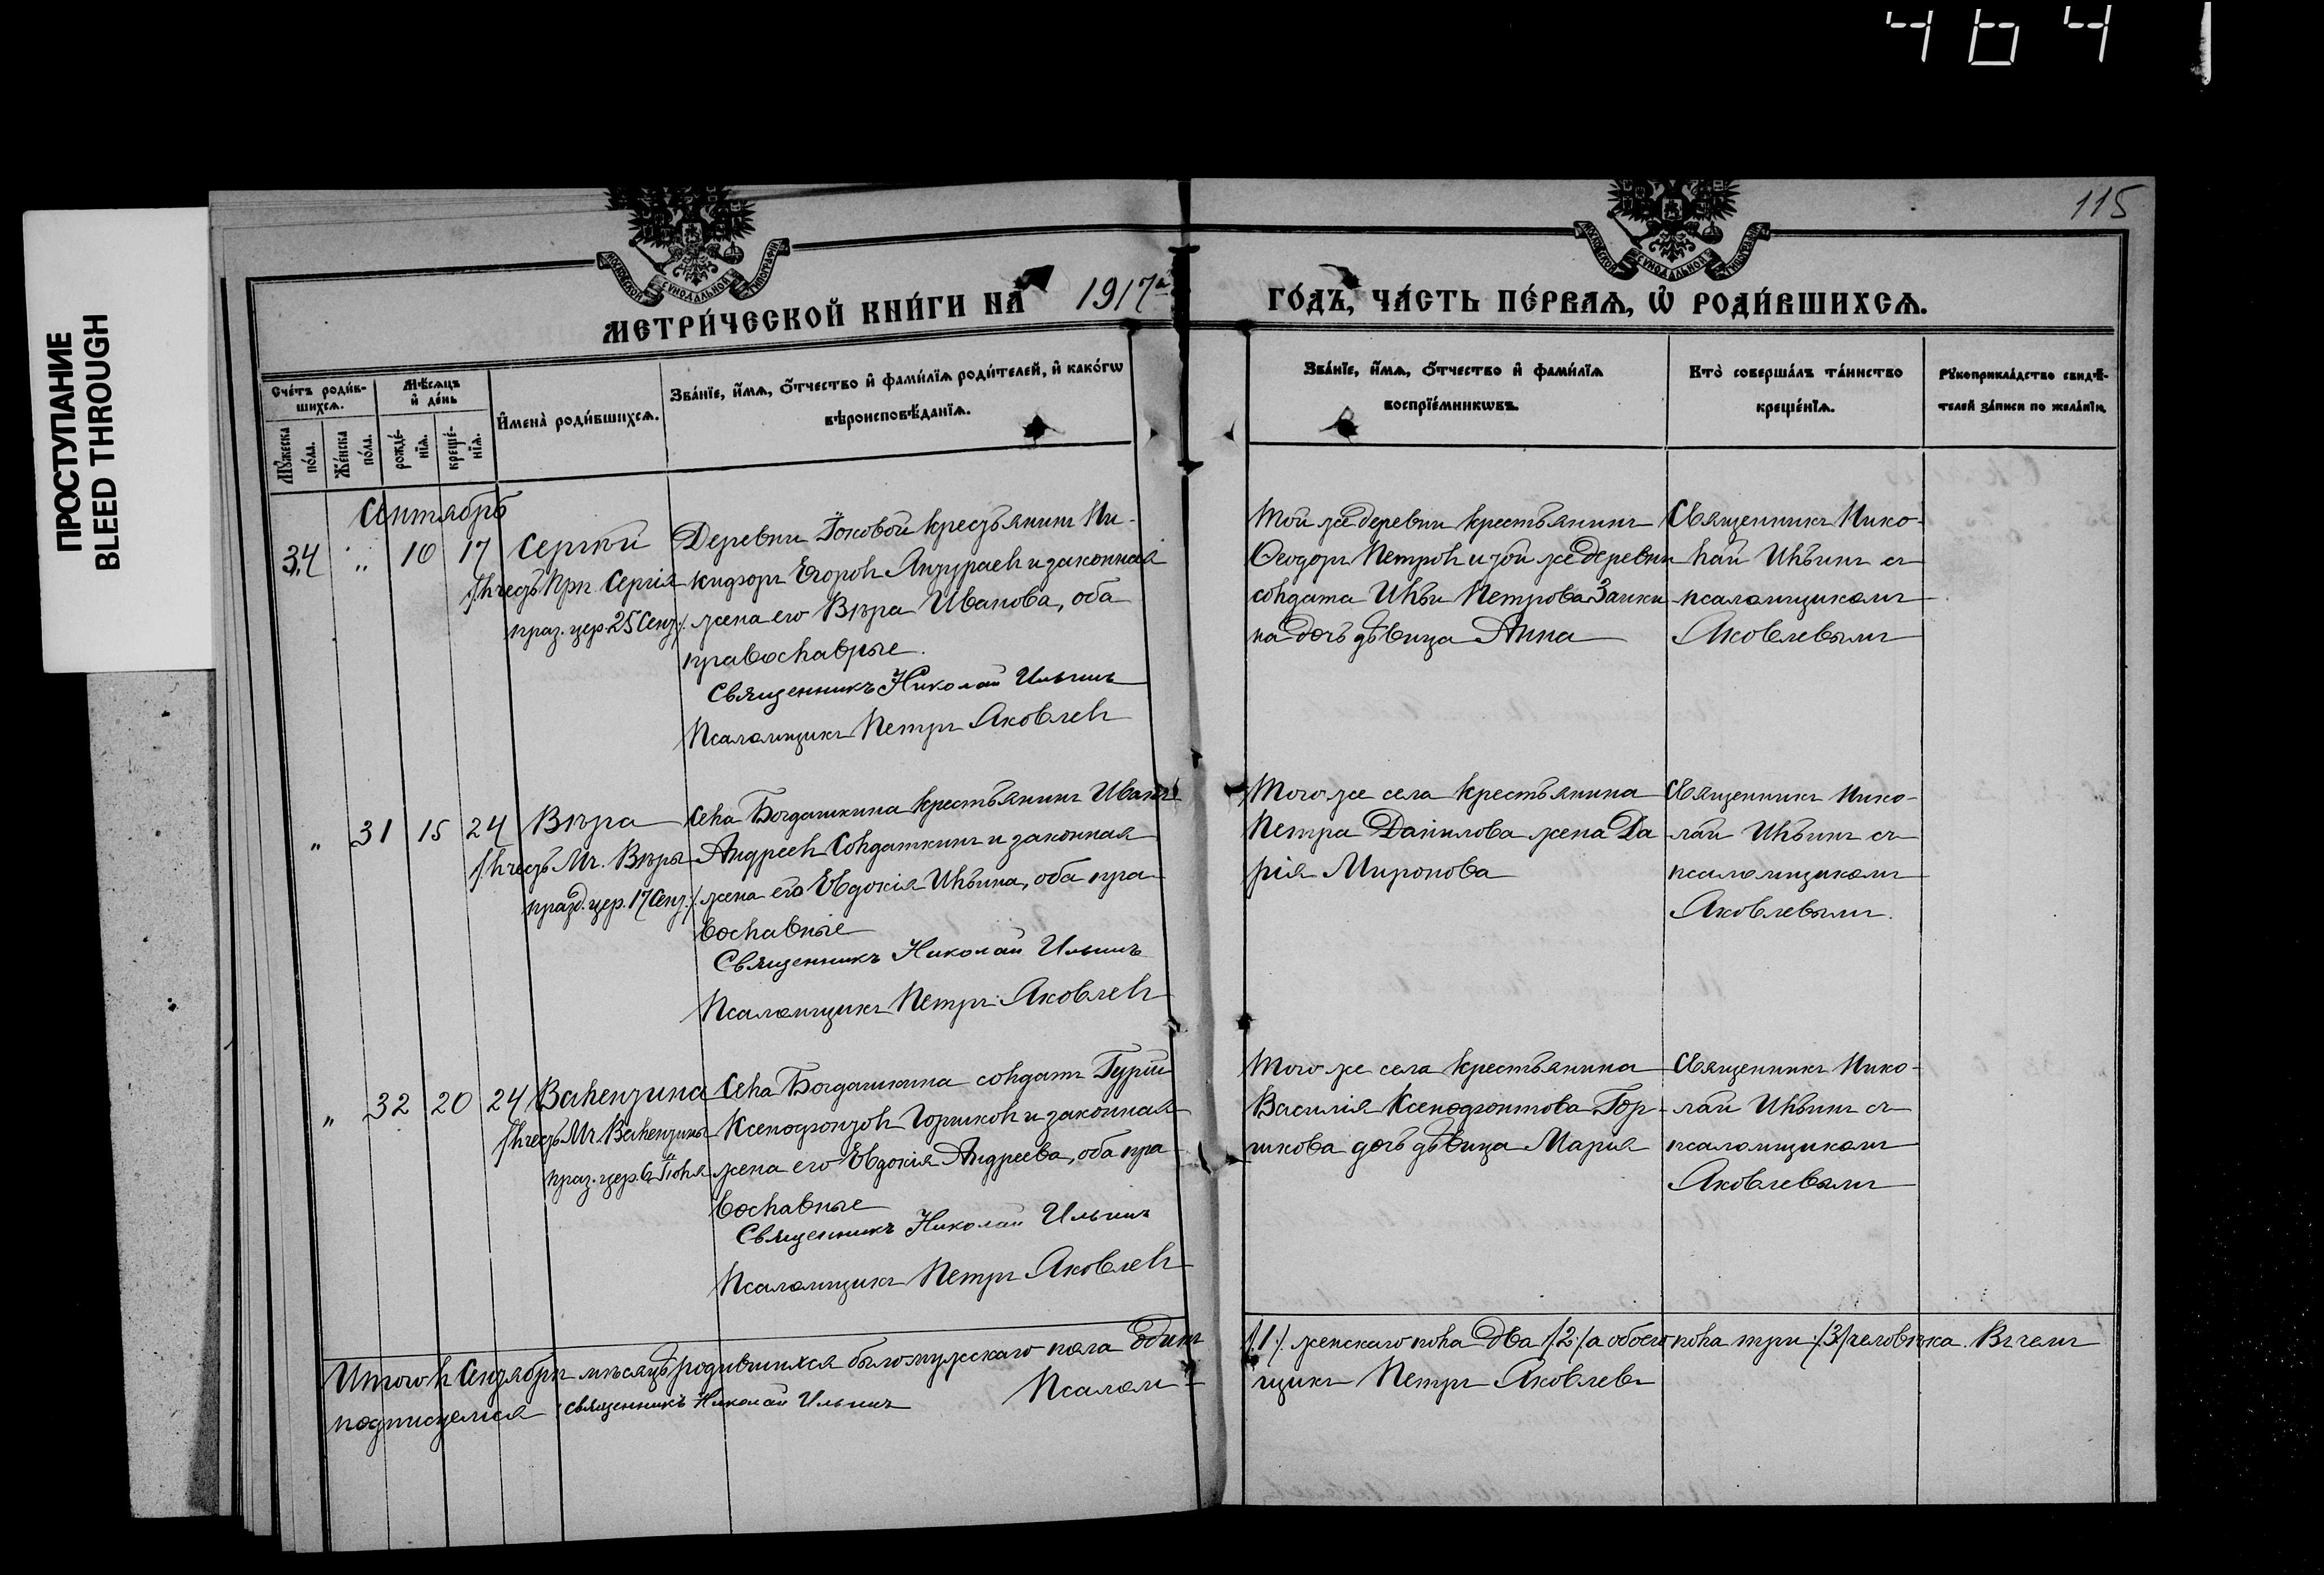 464
ПРОСТУПАНИЕ
BLEED THROUGH
115
МОСКОВСКОЙ СѴНОДАЛЬНОЙ ТИПОГРАФІИ
МОСКОВСКОЙ СѴНОДАЛЬНОЙ ТИПОГРАФІИ
МЕТРИ́ЧЕСКОЙ КНИ́ГИ НА 1917й ГО́ДЪ, ЧА́СТЬ ПЕ́РВАѦ, Ѽ РОДИ́ВШИХСѦ.
Сче́тъ роди́в-
шихсѧ.
Му́жеска по́ла.
Же́нска по́ла.
Мѣ́сѧцъ и де́нь
рожде́-
нїѧ.
креще́-
нїѧ.
И҆мена̀ роди́вшихсѧ.
Зва́нїе, и҆́мѧ, ѻ҆́тчество и҆ фами́лїѧ роди́телей, и҆ како́гѡ
вѣроисповѣ́данїѧ.
Зва́нїе, и҆́мѧ, ѻ҆́тчество и҆ фами́лїѧ
воспрїе́мникѡвъ.
Кто̀ соверша́лъ та́инство
креще́нїѧ.
Рꙋкоприкла́дство свидѣ́-
телей за́писи по жела́нїю.
Сентябрь
34 " 10 17 Сергѣй Деревни Ишковой крестьянинъ Ни-
/:въ честь Прп. Сергія кифоръ Егоровъ и законная
праз. цер. 25 Сент:/ жена его Вѣра Иванова, оба
православные.
Священникъ Николай Ильинъ
Псаломщикъ Петръ Яковлевъ
Той же деревни крестьянинъ
Ѳеодоръ Петровъ и той же деревни
солдата Ильи Петрова Заики
на дочь дѣвица Анна
Священникъ Нико-
лай Ильинъ съ
псаломщикомъ
Яковлевымъ
" 31 15 24 Вѣра Села Богдашкина крестьянинъ Иванъ
/:въ честь Мч. Вѣры Андреевъ Солдаткинъ и законная
празд. цер. 17 Сент:/ жена его Евдокія Ильина, оба пра
вославные
Священникъ Николай Ильинъ
Псаломщикъ Петръ Яковлевъ
Того же села крестьянина
Петра Данилова жена Да
рія Миронова
Священникъ Нико-
лай Ильинъ съ
псаломщикомъ
Яковлевымъ.
" 32 20 24 Валентина Села Богдашкина солдатъ Гурій
/:въ честь Мч. Валентины Ксенофонтовъ Горшковъ и законная
праз. цер. Іюля жена его Евдокія Андреева, оба пра
вославные
Священникъ Николай Ильинъ
Псаломщикъ Петръ Яковлевъ
Того же села крестьянина
Василія Ксенофонтова Гор-
шкова дочь дѣвица Марія
Священникъ Нико-
лай Ильинъ съ
псаломщикомъ
Яковлевымъ
Итого въ Сентябрѣ мѣсяцѣ родившихся было мужскаго пола одинъ /:1:/ женскаго пола два /:2:/ а обоего пола три /:3:/ человѣка. Въ чемъ
подписуемся священникъ Николай Ильинъ Псалом-
щикъ Петръ Яковлевъ